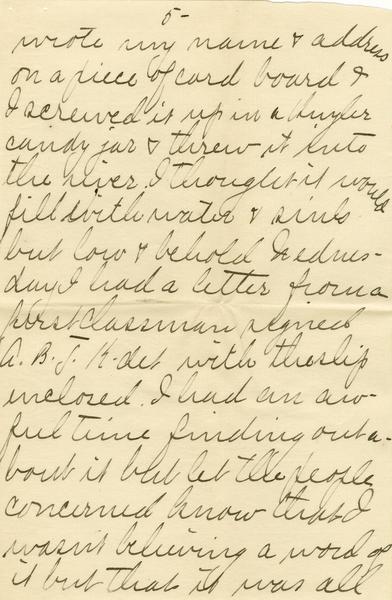 5-
wrote my name & address
on a piece of card board &
I screwed it up in a Huyler
candy jar & threw it into
the river. I thought it would
fill with water & sink
but low & behold Wednes-
day I had a letter from a
first classman signed
A. B. J. K-det with the slip
enclosed. I had an aw-
ful time finding out a-
bout it but let the people
concerned know that I
wasn't believing a word of
it but that it was all